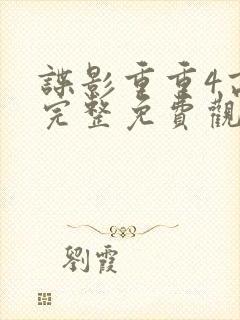 諜影重重4
完整免費觀
劉霞